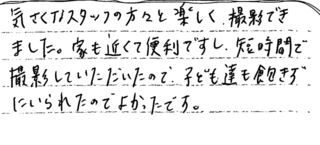 気さくなスタッフの方々と楽しく撮影でき
ました。家も近くて便利ですし、短時間で
撮影していただいたので、子ども達も飽きず
にいられたのでよかったです。